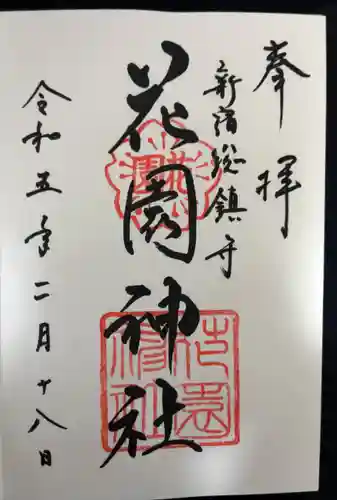 奉拝
新宿総鎮守
花園神社
令和五年二月十八日
花園
花園神社